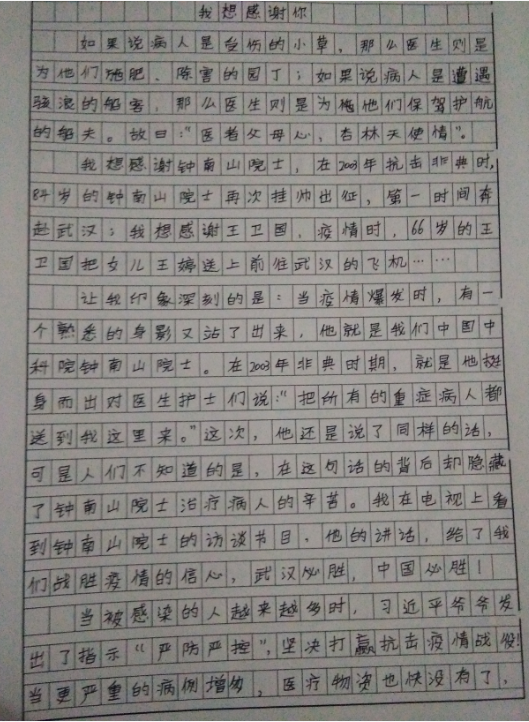 我想感谢你
如果说病人是受伤的小草，那么医生则是
为他们施肥、除害的园丁；如果说病人是遭遇
骇浪的船客，那么医生则是为他们保驾护航
的船夫。故曰：“医者父母心，杏林天使情”。
我想感谢钟南山院士，在2003年抗击非典时，
84岁的钟南山院士再次挂帅出征，第一时间奔
赴武汉；我想感谢王卫国，疫情时，66岁的王
卫国把女儿王婷送上前往武汉的飞机……
让我印象深刻的是：当疫情爆发时，有一
个熟悉的身影又站了出来，他就是我们中国中
科院钟南山院士。在2003年非典时期，就是他挺
身而出对医生护士们说：“把所有的重症病人都
送到我这里来。”这次，他还是说了同样的话，
可是人们不知道的是，在这句话的背后却隐藏
了钟南山院士治疗病人的辛苦。我在电视上看
到钟南山院士的访谈节目，他的讲话，给了我
们战胜疫情的信心，武汉必胜，中国必胜！
当被感染的人越来越多时，习近平爷爷发
出了指示“严防严控”，坚决打赢抗击疫情战役！
当更严重的病例增多，医疗物资也快没有了，